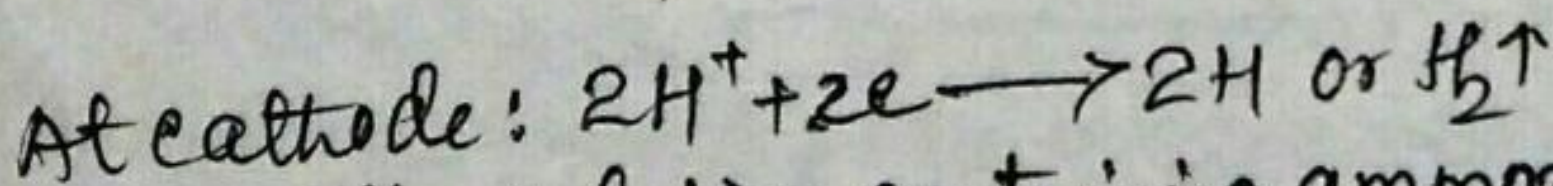 At cathode: 2H⁺+2e⟶2H or H₂↑